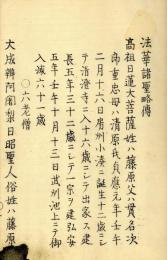 法華諸聖略傳
高祖日蓮大菩薩姓ハ藤原父ハ貫名次
郎重忠母ハ清原氏貞應元年壬午
二月十六日房州小湊ニ誕生十二歳ニシ
テ清澄寺ニ入十六歳ニシテ出家ス建
長五年三十二歳ニシテ宗ヲ建弘安
五年壬午十月十三日武州池上ニテ御
入滅六十一歳
〇六老僧
大成辨阿闍梨日昭聖人俗姓ハ藤原